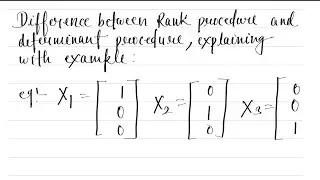 Difference between Rank procedure and
determinant procedure, explaining
with example:
eg:- X1 = [1 0 0] X2 = [0 1 0] X3 = [0 0 1]